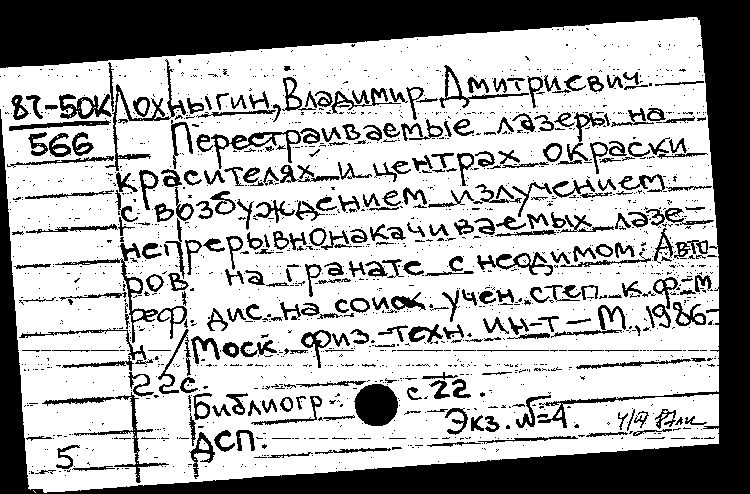 87-50К Лохныгин, Владимир Дмитриевич
566 Перестраиваемые лазеры на
красителях и центрах окраски
с возбуждением излучением
непрерывнонакачиваемых лазе-
ров на гранате с неодимом: Авто-
реф. дис. на соиск. учен. степ. к. ф-м
н. Моск. физ.-техн. ин-т – М, 1986-
22с.
Библиогр.: с. 22.
ДСП. Экз. №=4.
5